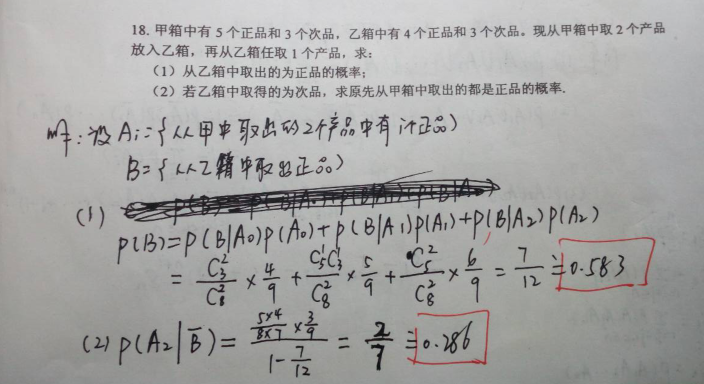 18. 甲箱中有 5 个正品和 3 个次品，乙箱中有 4 个正品和 3 个次品。现从甲箱中取 2 个产品
放入乙箱，再从乙箱任取 1 个产品，求：
（1）从乙箱中取出的为正品的概率；
（2）若乙箱中取得的为次品，求原先从甲箱中取出的都是正品的概率.
解：设 Ai={从甲中取出的2个产品中有i个正品}
B={从乙箱中取出正品}
(1)
P(B)=P(B|A0)P(A0)+P(B|A1)P(A1)+P(B|A2)P(A2)
= C₃²/C₈² × 4/9 + C₅¹C₃¹/C₈² × 5/9 + C₅²/C₈² × 6/9 = 7/12 ≐ 0.583
(2) P(A2|B̄) = (5×4/8×7 × 3/9)/(1-7/12) = 2/7 ≐ 0.286